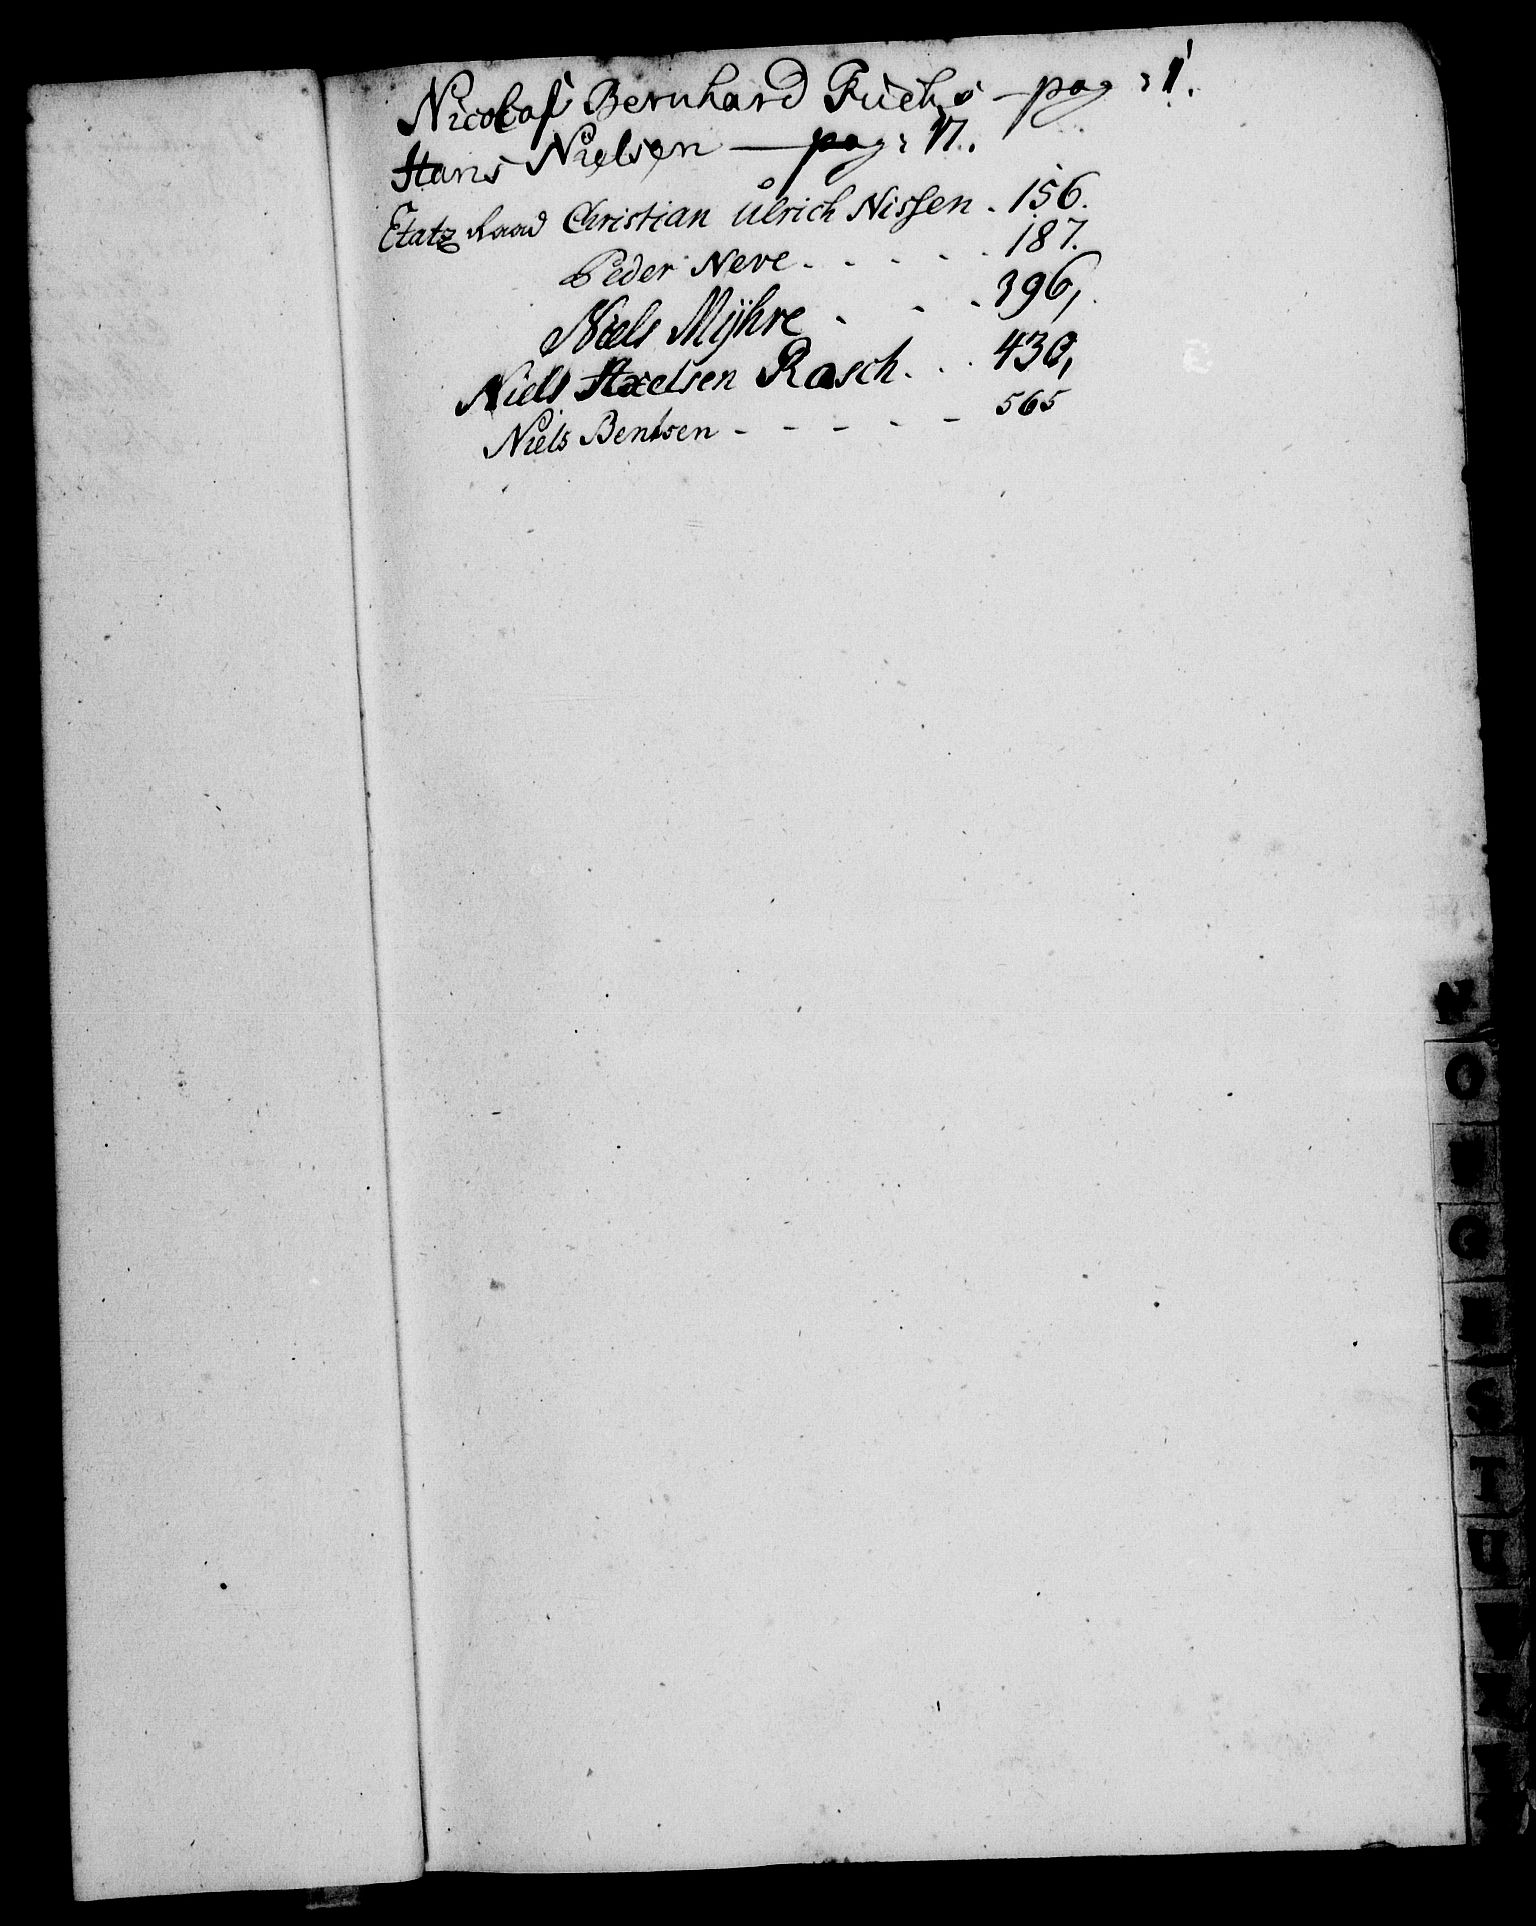 Nicolaß Bernhard Fuchs - pag: 1.
Hans Nielsen — pag: 17.
Etatz Raad Christian Ulrich Nissen . 156.
Peder Neve . . . . . 187.
Niels Mÿhre . . . 396,
Niels Axelsen Rasch . . . 430,
Niels Bentsen - - - - - 565
N
O
Q
S
T
U